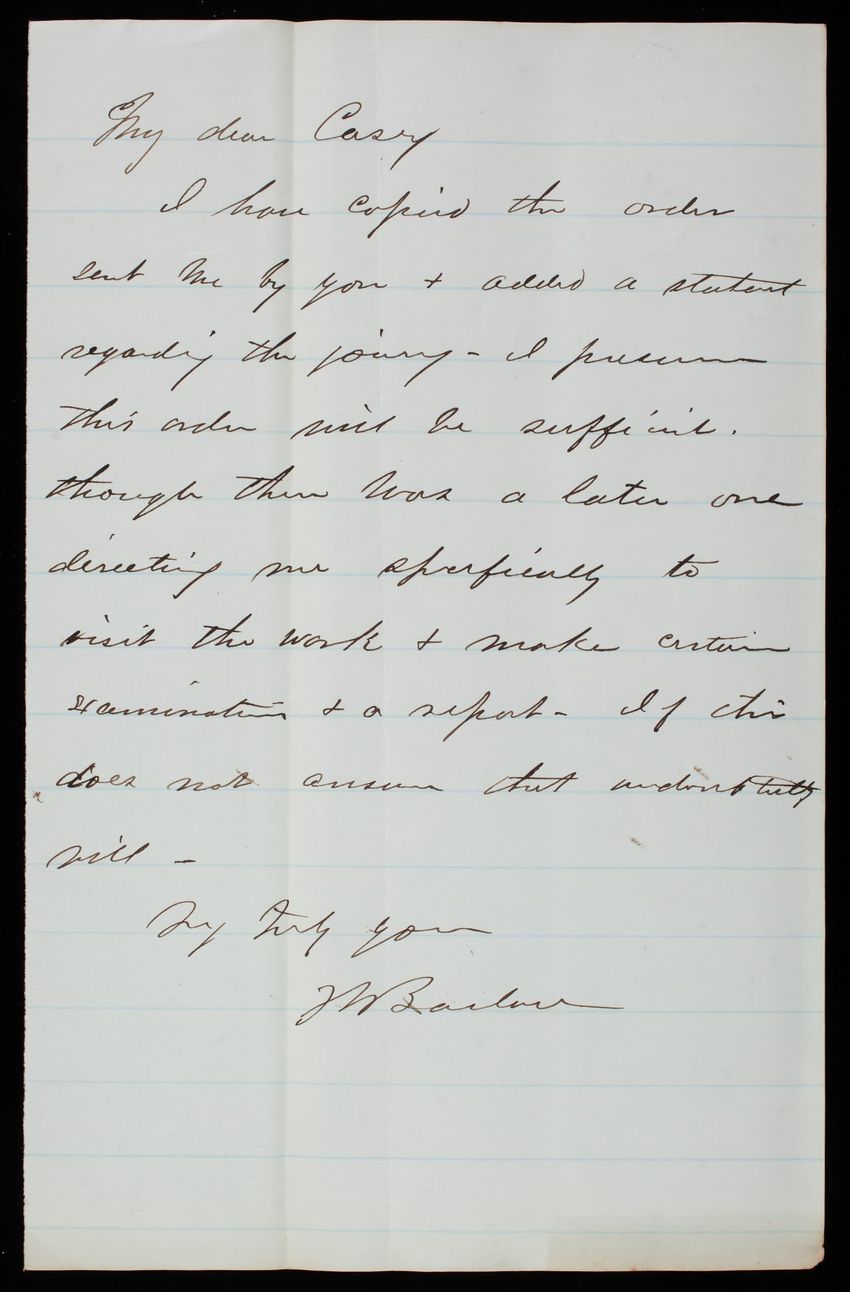 My dear Casey
I have copied the order
sent me by you & added a statemt
regarding the journey - I presume
this order will be sufficient.
though there was a later one
directing me specfically to
visit the work & make certain
examination & a report - If this
does not answer that undoubtedly
will -
Very truly yours
J W Barlow